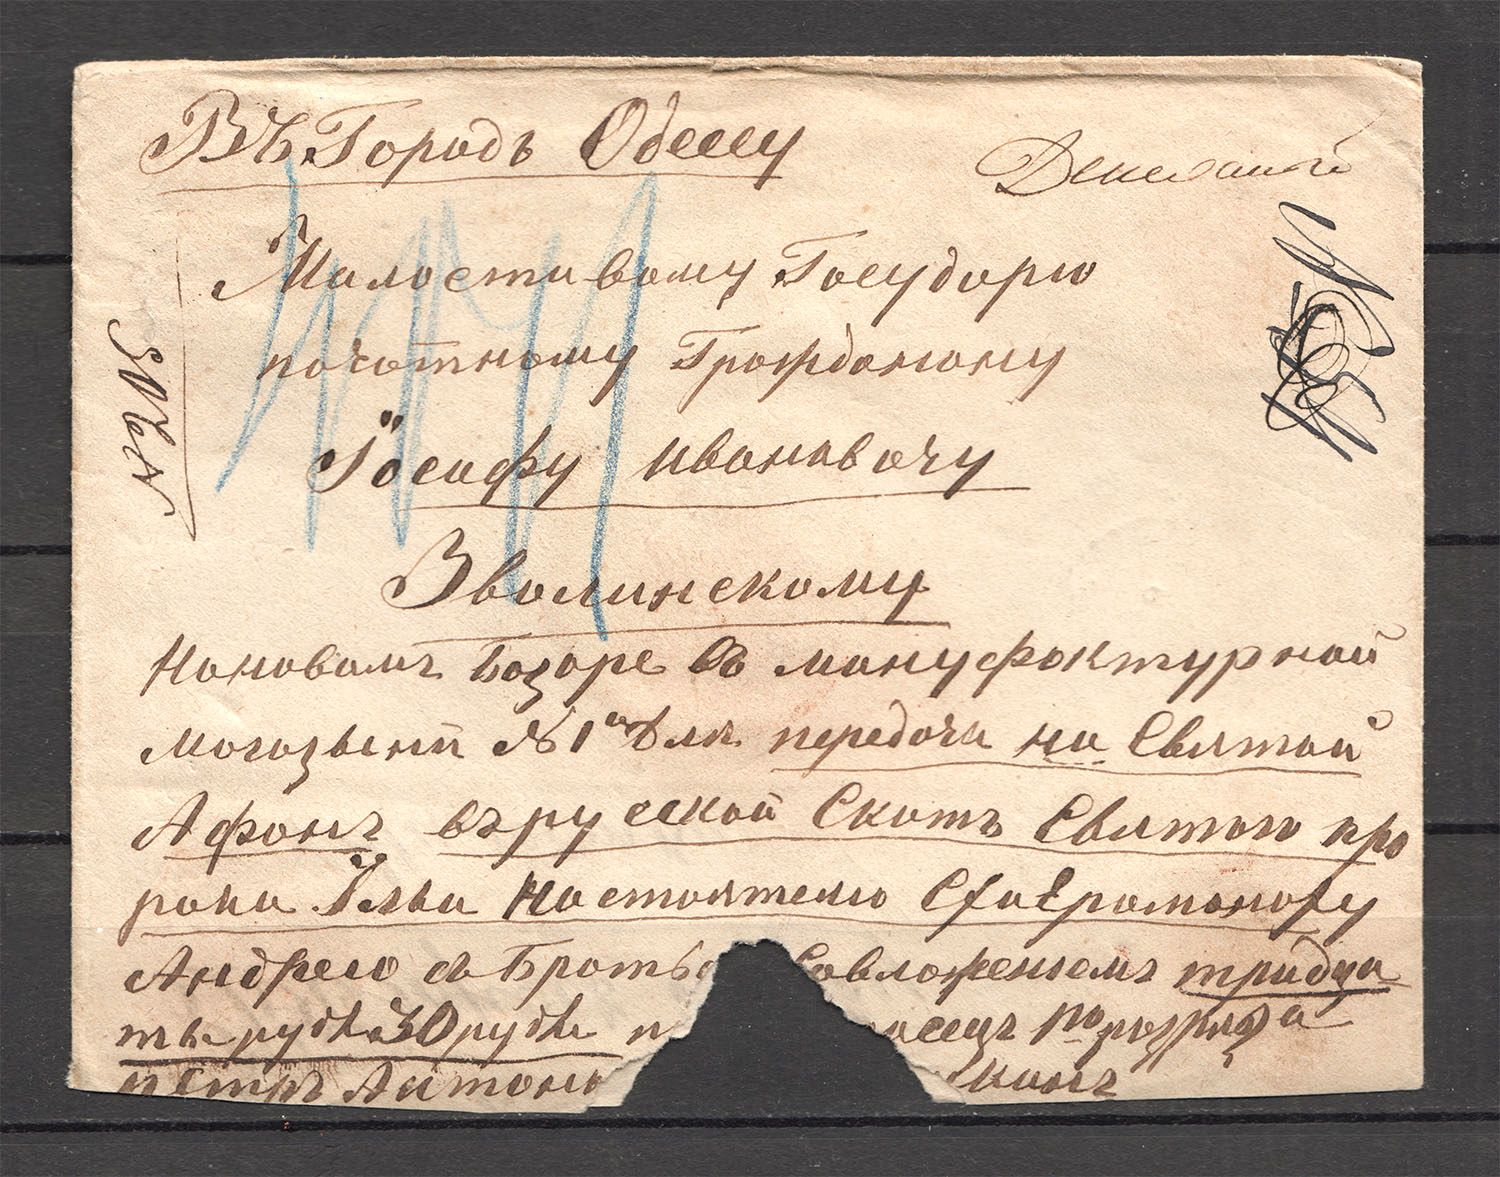 Въ Городъ Одессу
Денежный
Милостивому Государю
почотному Гражданину
Іосифу Ивановичу
Зволинскому
На новомъ Базаре въ мануфактурной
Могозѣнъ №1й Для передачи на Святой
Афонъ въ русской Скотъ Святого про
рока Ільи Настоятелю
Андрею съ Братье вложеніемъ тридца
ть рубл 30 рубл разряда
петръ Антоно